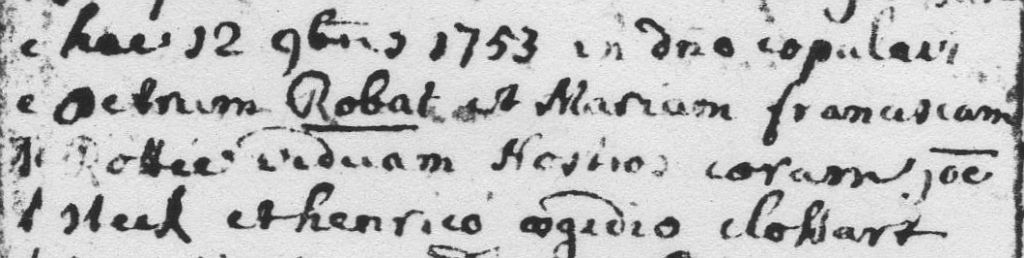 hac 12 9bris 1753 in dno copulavi
petrum Robat et Mariam franciscam
Rottie viduam Nostros coram joe
Neck et henrico ægidio clobbart